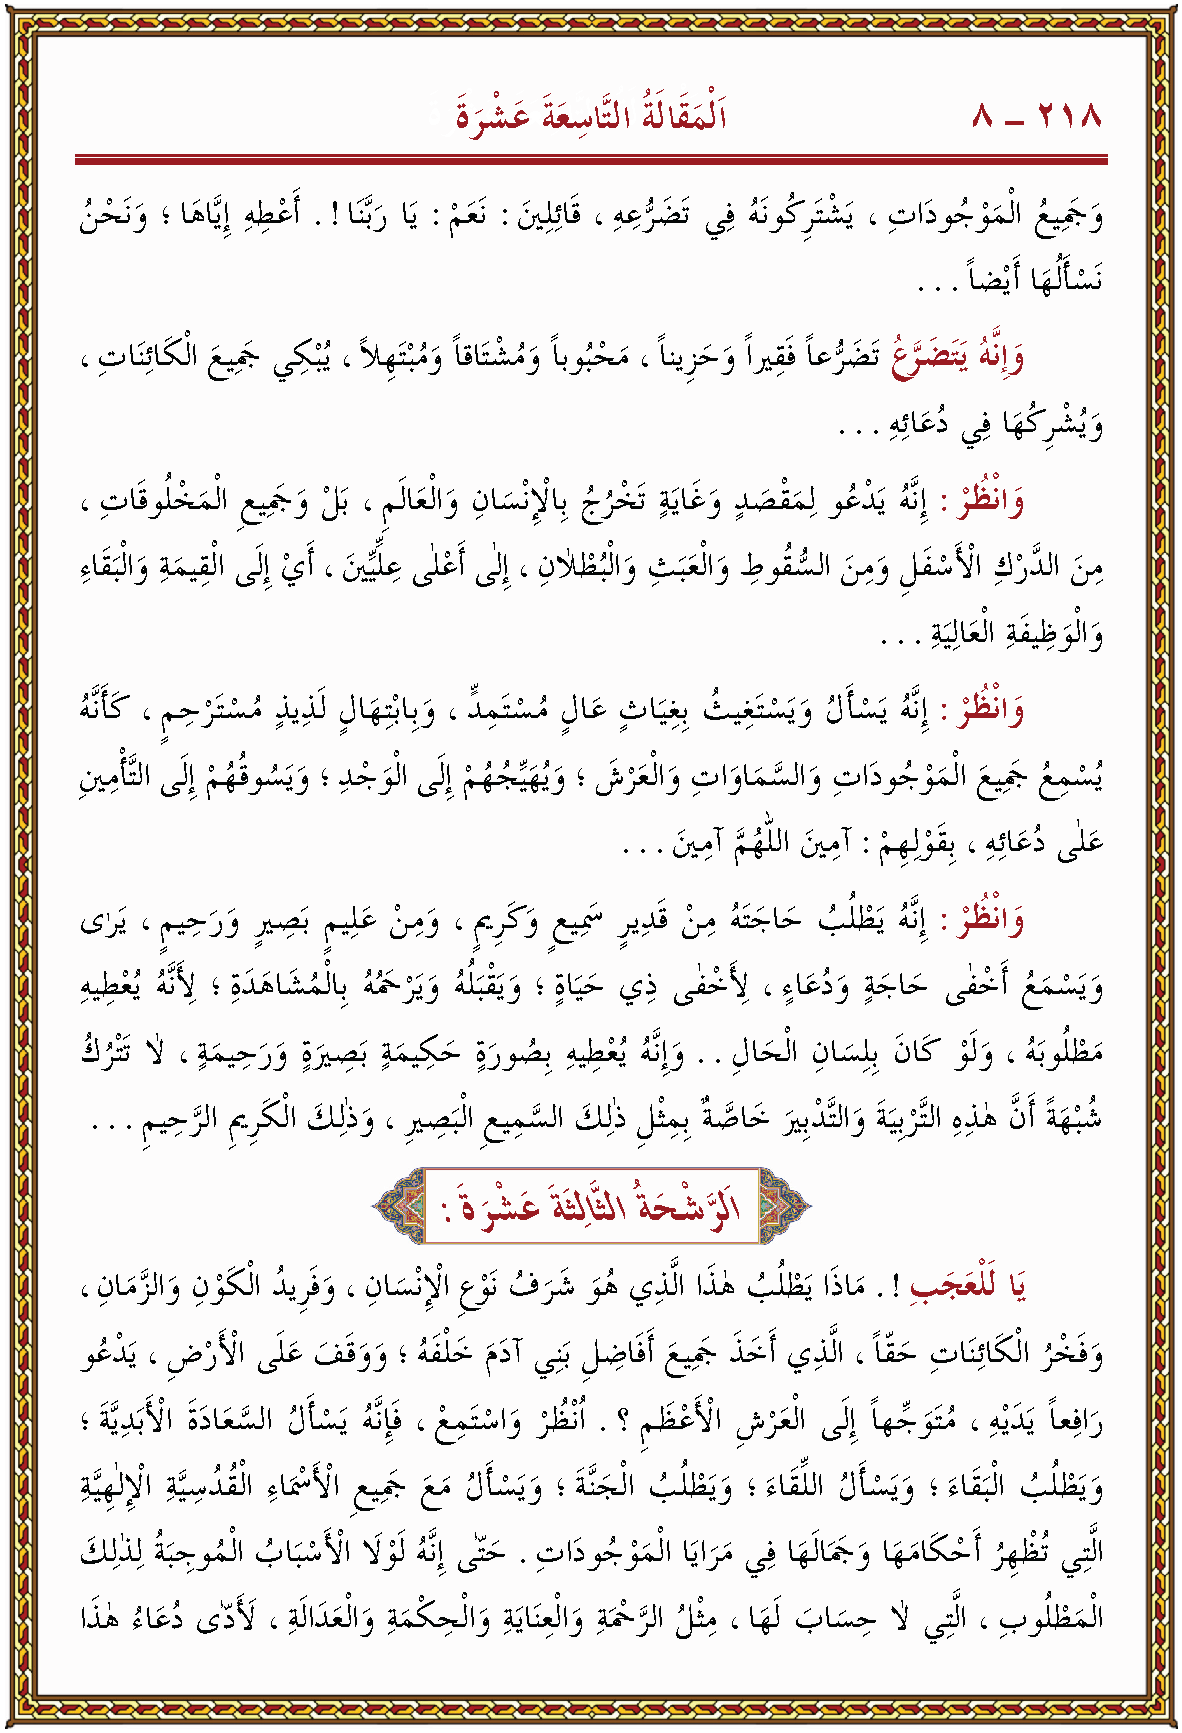 ٢١٨ – ٨ اَلْمَقَالَةُ التَّاسِعَةَ عَشْرَةَ
وَجَمِيعُ الْمَوْجُودَاتِ ، يَشْتَرِكُونَهُ فِي تَضَرُّعِهِ ، قَائِلِينَ : نَعَمْ : يَا رَبَّنَا ! . أَعْطِهِ إِيَّاهَا ؛ وَنَحْنُ
نَسْأَلُهَا أَيْضاً . . .
وَإِنَّهُ يَتَضَرَّعُ تَضَرُّعاً فَقِيراً وَحَزِيناً ، مَحْبُوباً وَمُشْتَاقاً وَمُبْتَهِلاً ، يُبْكِي جَمِيعَ الْكَائِنَاتِ ،
وَيُشْرِكُهَا فِي دُعَائِهِ . . .
وَانْظُرْ : إِنَّهُ يَدْعُو لِمَقْصَدٍ وَغَايَةٍ تَخْرُجُ بِالْإِنْسَانِ وَالْعَالَمِ ، بَلْ وَجَمِيعِ الْمَخْلُوقَاتِ ،
مِنَ الدَّرْكِ الْأَسْفَلِ وَمِنَ السُّقُوطِ وَالْعَبَثِ وَالْبُطْلاٰنِ ، إِلٰى أَعْلٰى عِلِّيِّينَ ، أَيْ إِلَى الْقِيمَةِ وَالْبَقَاءِ
وَالْوَظِيفَةِ الْعَالِيَةِ . . .
وَانْظُرْ : إِنَّهُ يَسْأَلُ وَيَسْتَغِيثُ بِغِيَاثٍ عَالٍ مُسْتَمِدٍّ ، وَبِابْتِهَالٍ لَذِيذٍ مُسْتَرْحِمٍ ، كَأَنَّهُ
يُسْمِعُ جَمِيعَ الْمَوْجُودَاتِ وَالسَّمَاوَاتِ وَالْعَرْشَ ؛ وَيُهَيِّجُهُمْ إِلَى الْوَجْدِ ؛ وَيَسُوقُهُمْ إِلَى التَّأْمِينِ
عَلٰى دُعَائِهِ ، بِقَوْلِهِمْ : آمِينَ اللّٰهُمَّ آمِينَ . . .
وَانْظُرْ : إِنَّهُ يَطْلُبُ حَاجَتَهُ مِنْ قَدِيرٍ سَمِيعٍ وَكَرِيمٍ ، وَمِنْ عَلِيمٍ بَصِيرٍ وَرَحِيمٍ ، يَرٰى
وَيَسْمَعُ أَخْفٰى حَاجَةٍ وَدُعَاءٍ ، لِأَخْفٰى ذِي حَيَاةٍ ؛ وَيَقْبَلُهُ وَيَرْحَمُهُ بِالْمُشَاهَدَةِ ؛ لِأَنَّهُ يُعْطِيهِ
مَطْلُوبَهُ ، وَلَوْ كَانَ بِلِسَانِ الْحَالِ . . وَإِنَّهُ يُعْطِيهِ بِصُورَةٍ حَكِيمَةٍ بَصِيرَةٍ وَرَحِيمَةٍ ، لاٰ تَتْرُكُ
شُبْهَةً أَنَّ هٰذِهِ التَّرْبِيَةَ وَالتَّدْبِيرَ خَاصَّةٌ بِمِثْلِ ذٰلِكَ السَّمِيعِ الْبَصِيرِ ، وَذٰلِكَ الْكَرِيمِ الرَّحِيمِ . . .
اَلرَّشْحَةُ الثَّالِثَةَ عَشْرَةَ :
يَا لَلْعَجَبِ ! . مَاذَا يَطْلُبُ هٰذَا الَّذِي هُوَ شَرَفُ نَوْعِ الْإِنْسَانِ ، وَفَرِيدُ الْكَوْنِ وَالزَّمَانِ ،
وَفَخْرُ الْكَائِنَاتِ حَقّاً ، الَّذِي أَخَذَ جَمِيعَ أَفَاضِلِ بَنِي آدَمَ خَلْفَهُ ؛ وَوَقَفَ عَلَى الْأَرْضِ ، يَدْعُو
رَافِعاً يَدَيْهِ ، مُتَوَجِّهاً إِلَى الْعَرْشِ الْأَعْظَمِ ؟ . اُنْظُرْ وَاسْتَمِعْ ، فَإِنَّهُ يَسْأَلُ السَّعَادَةَ الْأَبَدِيَّةَ ؛
وَيَطْلُبُ الْبَقَاءَ ؛ وَيَسْأَلُ اللِّقَاءَ ؛ وَيَطْلُبُ الْجَنَّةَ ؛ وَيَسْأَلُ مَعَ جَمِيعِ الْأَسْمَاءِ الْقُدُسِيَّةِ الْإِلٰهِيَّةِ
الَّتِي تُظْهِرُ أَحْكَامَهَا وَجَمَالَهَا فِي مَرَايَا الْمَوْجُودَاتِ . حَتّٰى إِنَّهُ لَوْلَا الْأَسْبَابُ الْمُوجِبَةُ لِذٰلِكَ
الْمَطْلُوبِ ، الَّتِي لاٰ حِسَابَ لَهَا ، مِثْلُ الرَّحْمَةِ وَالْعِنَايَةِ وَالْحِكْمَةِ وَالْعَدَالَةِ ، لَأَدّٰى دُعَاءُ هٰذَا